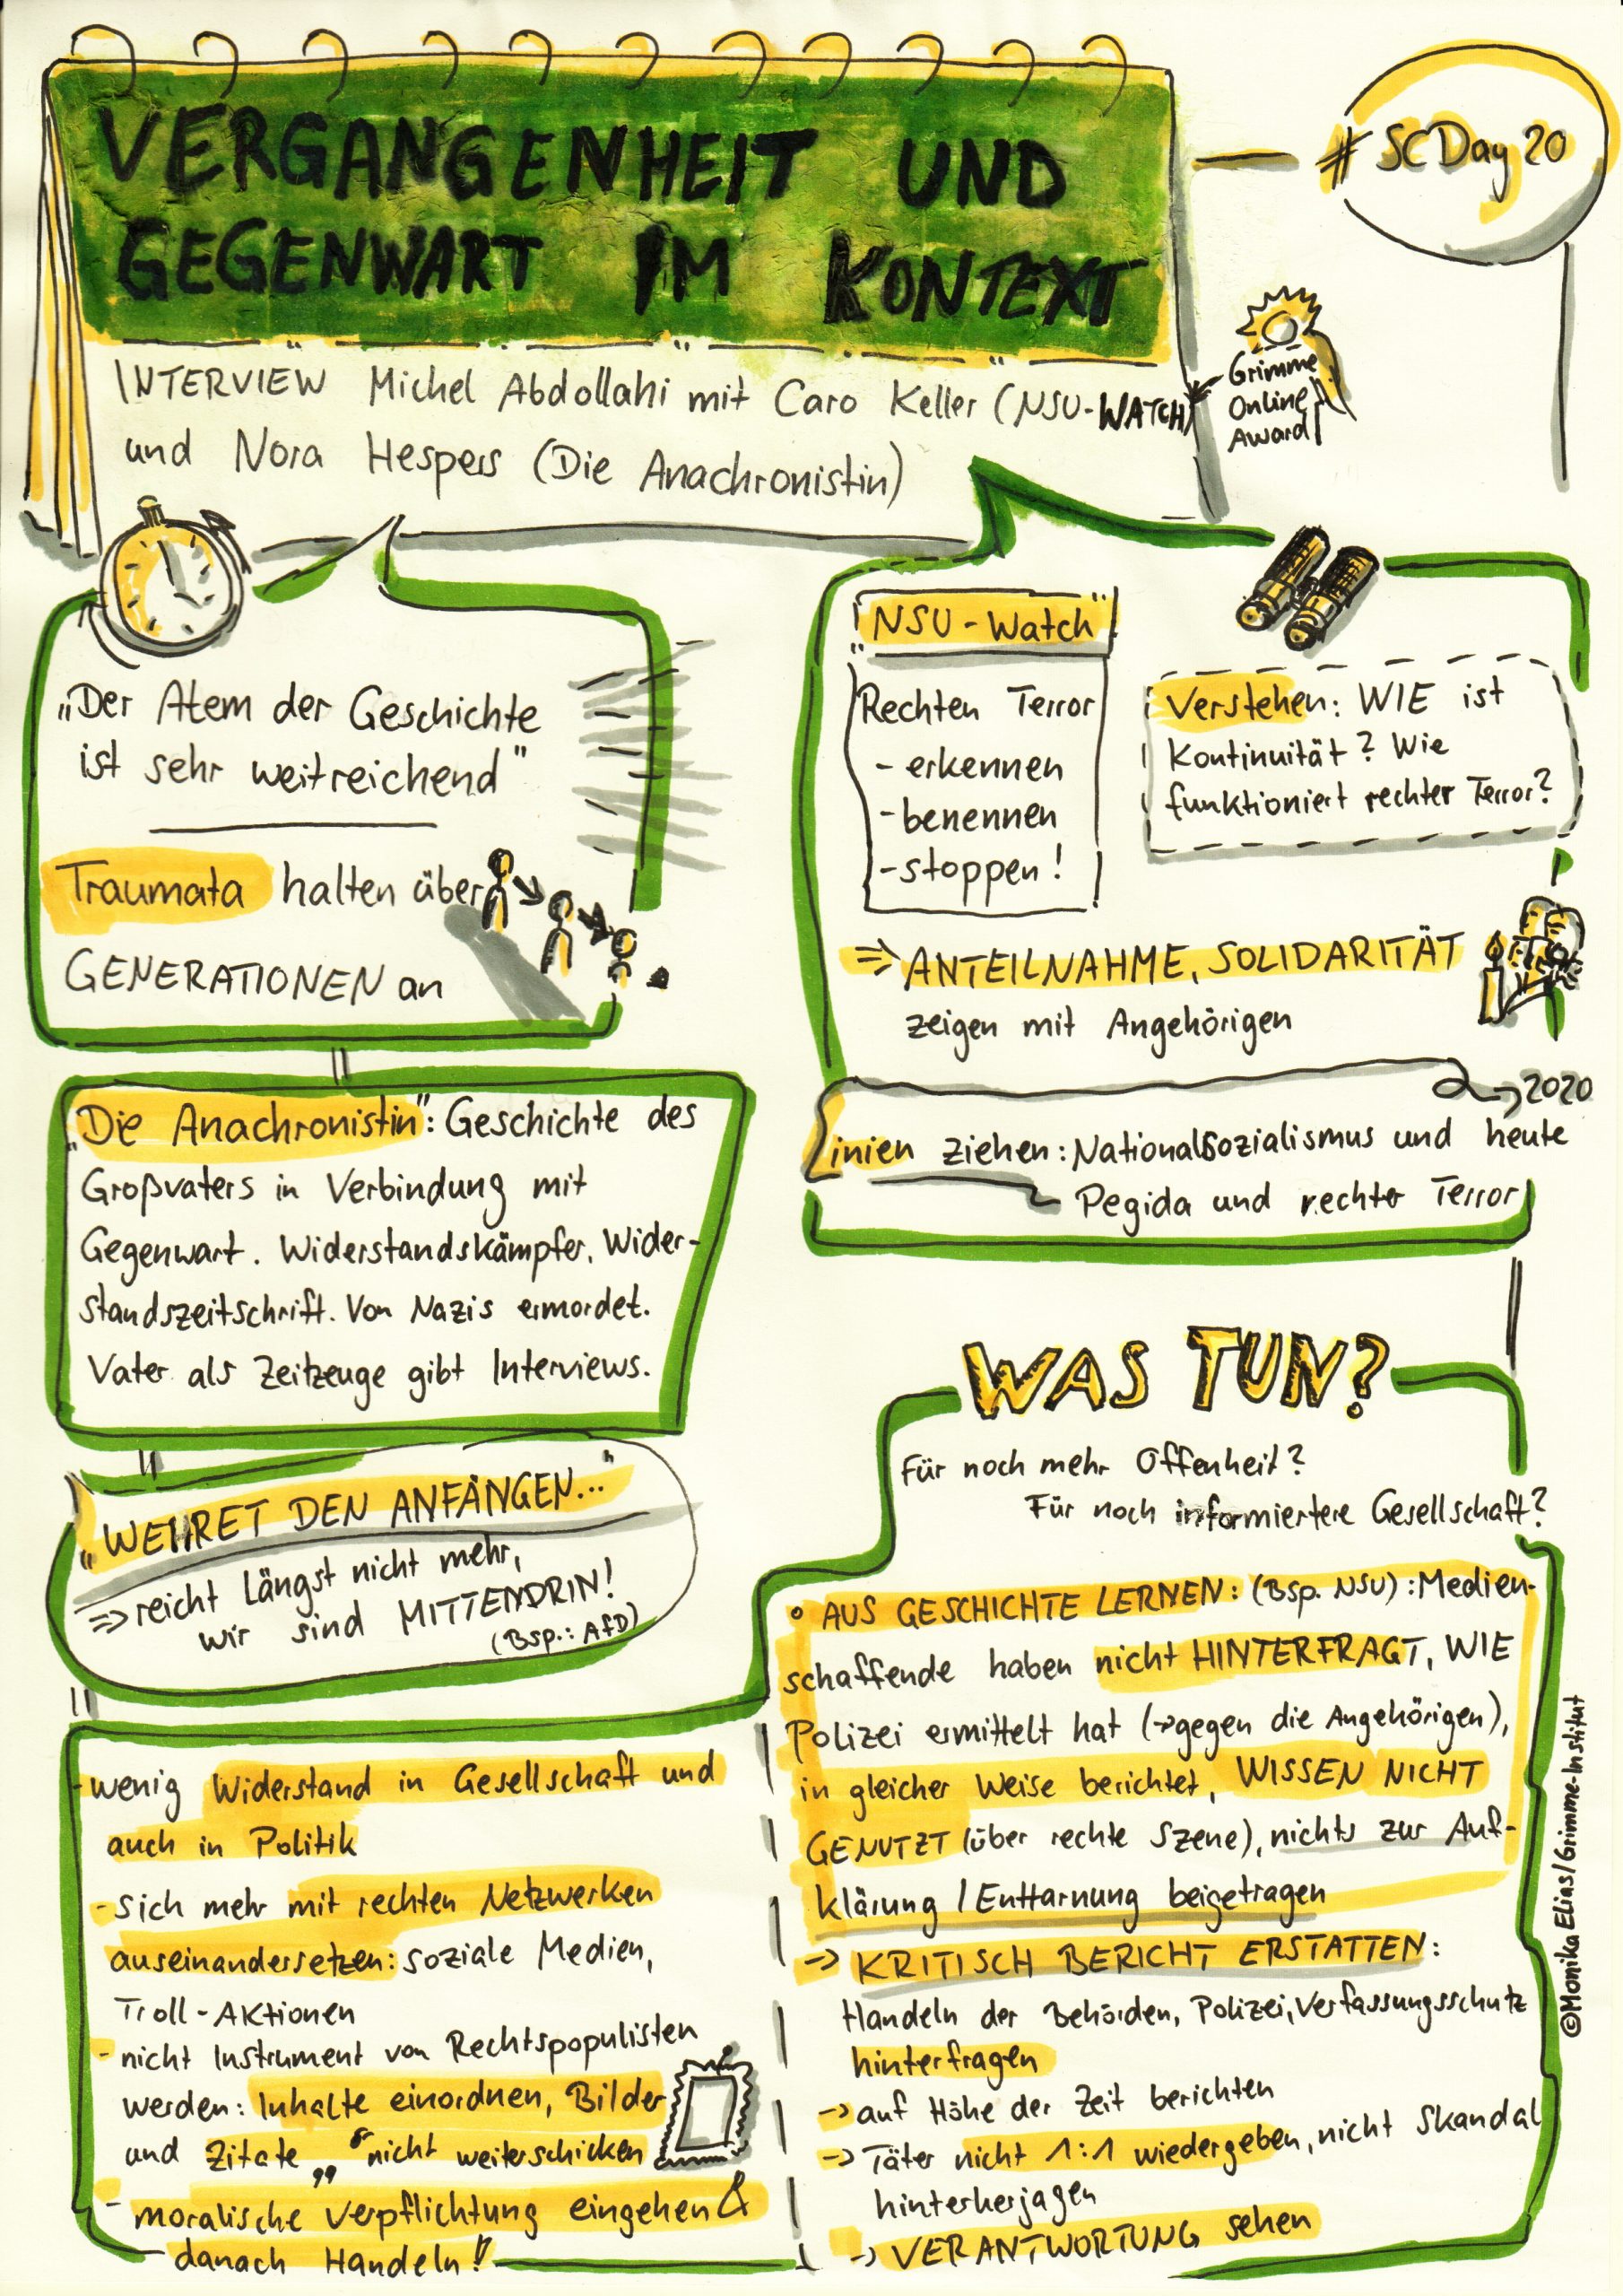 VERGANGENHEIT UND
GEGENWART IM KONTEXT
# SCDay 20
INTERVIEW Michel Abdollahi mit Caro Keller (NSU-WATCH)
und Nora Hespers (Die Anachronistin)
Grimme
Online
Award
„Der Atem der Geschichte
ist sehr weitreichend"
Traumata halten über
GENERATIONEN an
„Die Anachronistin": Geschichte des
Großvaters in Verbindung mit
Gegenwart. Widerstandskämpfer, Wider-
standszeitschrift. Von Nazis ermordet.
Vater als Zeitzeuge gibt Interviews.
„WEHRET DEN ANFÄNGEN..."
=> reicht Längst nicht mehr,
wir sind MITTENDRIN!
(Bsp.: AfD)
"NSU-Watch"
Rechten Terror
- erkennen
- benennen
- stoppen!
Verstehen: WIE ist
Kontinuität? Wie
funktioniert rechter Terror?
=> ANTEILNAHME, SOLIDARITÄT
zeigen mit Angehörigen
→ 2020
Linien ziehen: Nationalsozialismus und heute
Pegida und rechter Terror
WAS TUN?
Für noch mehr Offenheit?
Für noch informiertere Gesellschaft?
- wenig Widerstand in Gesellschaft und
auch in Politik
- sich mehr mit rechten Netzwerken
auseinandersetzen: soziale Medien,
Troll-Aktionen
- nicht Instrument von Rechtspopulisten
werden: Inhalte einordnen, Bilder
und Zitate „ “ nicht weiterschicken
- moralische Verpflichtung eingehen &
danach Handeln!!
• AUS GESCHICHTE LERNEN: (Bsp. NSU): Medien-
schaffende haben nicht HINTERFRAGT, WIE
Polizei ermittelt hat (→gegen die Angehörigen),
in gleicher Weise berichtet, WISSEN NICHT
GENUTZT (über rechte Szene), nichts zur Auf-
klärung / Enttarnung beigetragen
-> KRITISCH BERICHT ERSTATTEN:
Handeln der Behörden, Polizei, Verfassungsschutz
hinterfragen
-> auf Höhe der Zeit berichten
-> Täter nicht 1:1 wiedergeben, nicht Skandal
hinterherjagen
-> VERANTWORTUNG sehen
©Monika Elias/Grimme-Institut